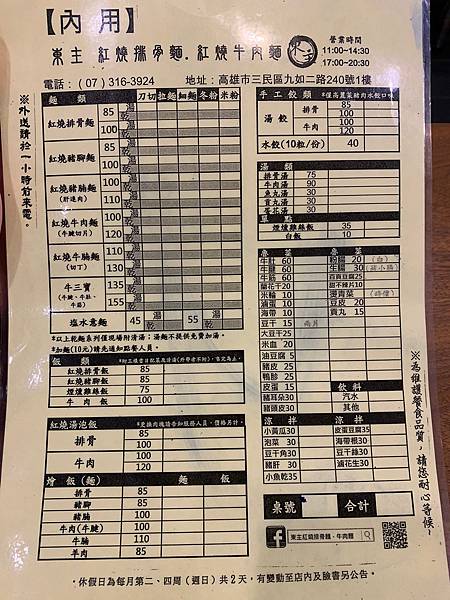 【內用】
東主 紅燒排骨麵.紅燒牛肉麵
營業時間
11:00~14:30
17:00~20:30
電話:(07)316-3924 地址:高雄市三民區九如二路240號1樓
※外送請於一小時前來電。
麵類 刀切 拉麵 細麵 冬粉 米粉
紅燒排骨麵 85 湯
100 乾
紅燒豬腳麵 85
100
紅燒豬腩麵 100
(肝連肉) 120
紅燒牛肉麵 100
(牛腱切片) 120
紅燒牛腩麵 110
(切丁) 130
牛三寶 135
(牛腱、牛肚、牛筋) 155
塩水意麵 湯 乾 45 湯 乾 55
*以上乾麵系列僅現場附清湯;湯麵不提供免費加湯。
*加麵(10元)請先通知點餐人員。
飯類
紅燒排骨飯 85
紅燒豬腳飯 85
牛肉飯 100
紅燒湯泡飯
排骨 85
100
牛肉 100
120
燴飯(麵) 麵 飯
排骨 85
豬腳 85
豬腩 100
牛肉(牛腱) 100
牛腩 110
羊肉 85
手工餃類 *僅高麗菜豬肉水餃口味
湯餃 排骨 85
100
牛肉 100
120
水餃(10粒/份) 40
湯類
排骨湯 75
牛肉湯 90
魚丸湯 30
貢丸湯 30
蛋花湯 30
單點
煙燻雞絲飯 35
白飯 10
魯菜 魯菜
牛肚 60
牛腱 60
牛筋 60
蘭花干 20
米輪 10
滷蛋 10
海帶 10
豆干 15
大豆干 25
米血 20
油豆腐 5
豬皮 25
鴨胗 25
皮蛋 15
豬耳朵 30
豬頭皮 30
粉腸 20 (白)
生腸 30
百頁豆腐 25
甜不辣片 10
燙青菜 (時價)
豆皮 20
貢丸 15
飲料
汽水
其他
涼拌 涼拌
小黃瓜 30 皮蛋豆腐 35
泡菜 30 海帶根 30
豆干角 30 豆干絲 30
豬肝 30 滷花生 30
小魚乾 35
桌號 合計
東主紅燒排骨麵、牛肉麵
※為維護餐食品質,請您耐心等候~
·休假日為每月第二、四周(週日)共2天,有變動至店內及臉書另公告·